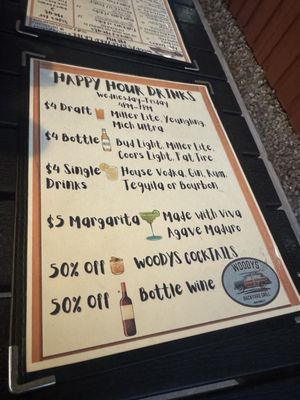 HAPPY HOUR DRINKS
Wednesday-Friday
4PM-7PM
$4 Draft Miller Lite, Youngling,
Mich Ultra
$4 Bottle Bud Light, Miller Lite,
Coors Light, Fat Tire
$4 Single House Vodka, Gin, Rum,
Drinks Tequila or Bourbon
$5 Margarita Made with Viva
Agave Maduro
50% Off WOODYS COCKTAILS
50% Off Bottle Wine
WOODYS
BACKYARD GRILL